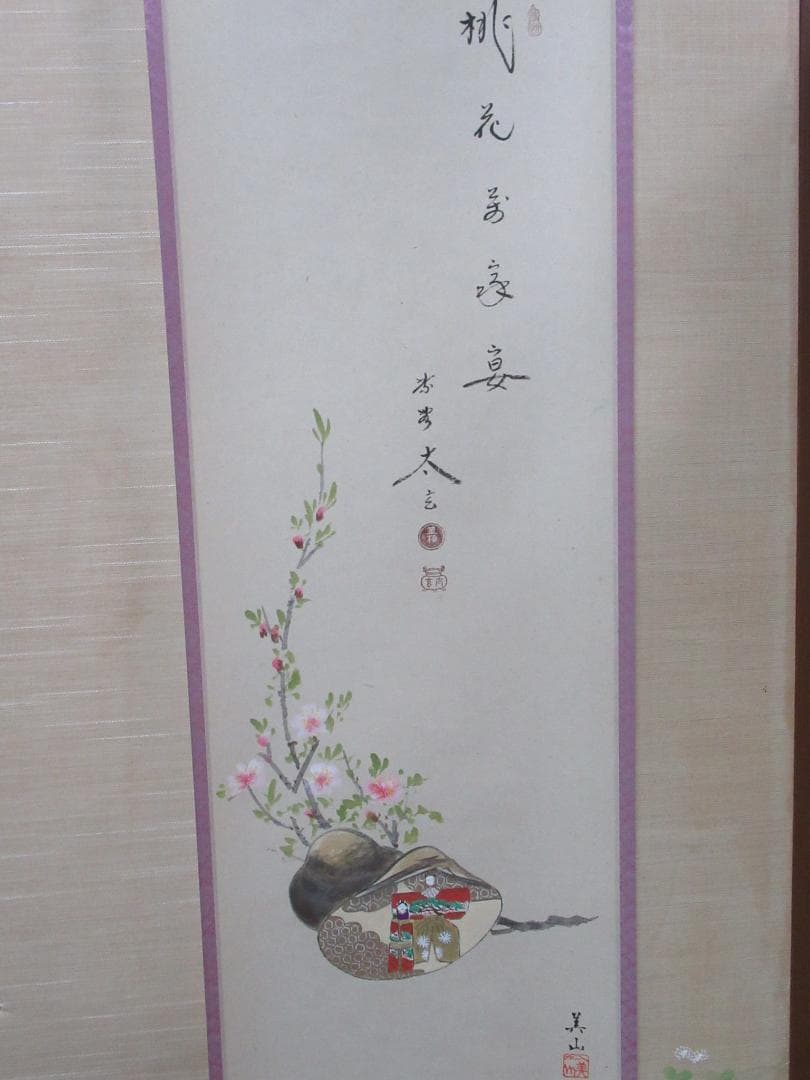 桃花万家宴
紫野太玄
美山